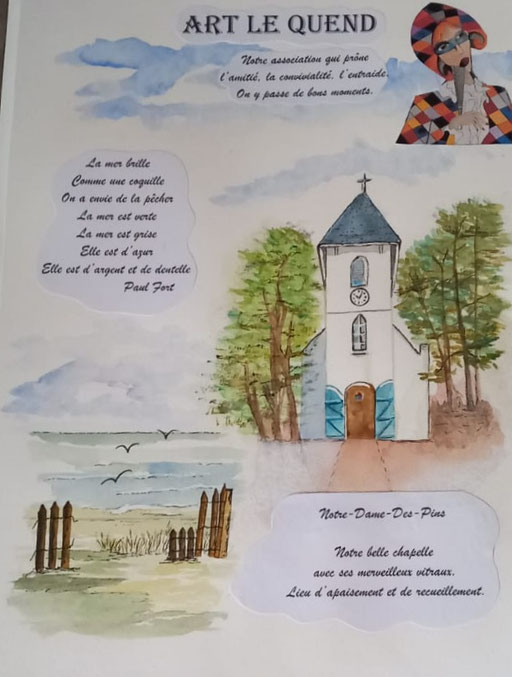 ART LE QUEND
Notre association qui prône
l'amitié, la convivialité, l'entraide.
On y passe de bons moments.
La mer brille
Comme une coquille
On a envie de la pêcher
La mer est verte
La mer est grise
Elle est d'azur
Elle est d'argent et de dentelle
Paul Fort
Notre-Dame-Des-Pins
Notre belle chapelle
avec ses merveilleux vitraux.
Lieu d'apaisement et de recueillement.